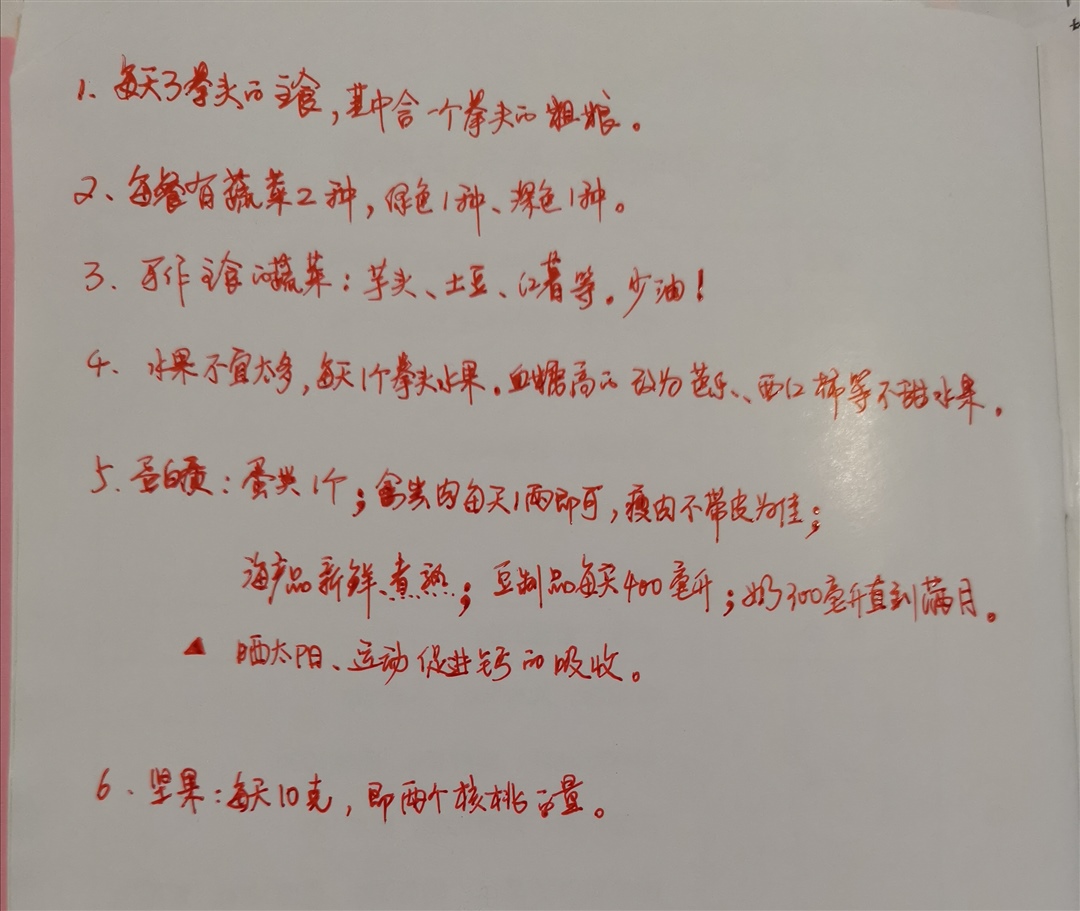 1、每天3拳头的主食，其中含一个拳头的粗粮。
2、每餐有蔬菜2种，绿色1种、深色1种。
3、可作主食的蔬菜：芋头、土豆、红薯等。少油！
4、水果不宜太多，每天1个拳头水果。血糖高的改为芭乐、西红柿等不甜水果。
5、蛋白质：蛋类1个；禽畜肉每天1两即可，瘦肉不带皮为佳；
海产品新鲜、煮熟；豆制品每天400毫升；奶300毫升直到满月。
▲ 晒太阳、运动促进钙的吸收。
6、坚果：每天10克，即两个核桃的量。